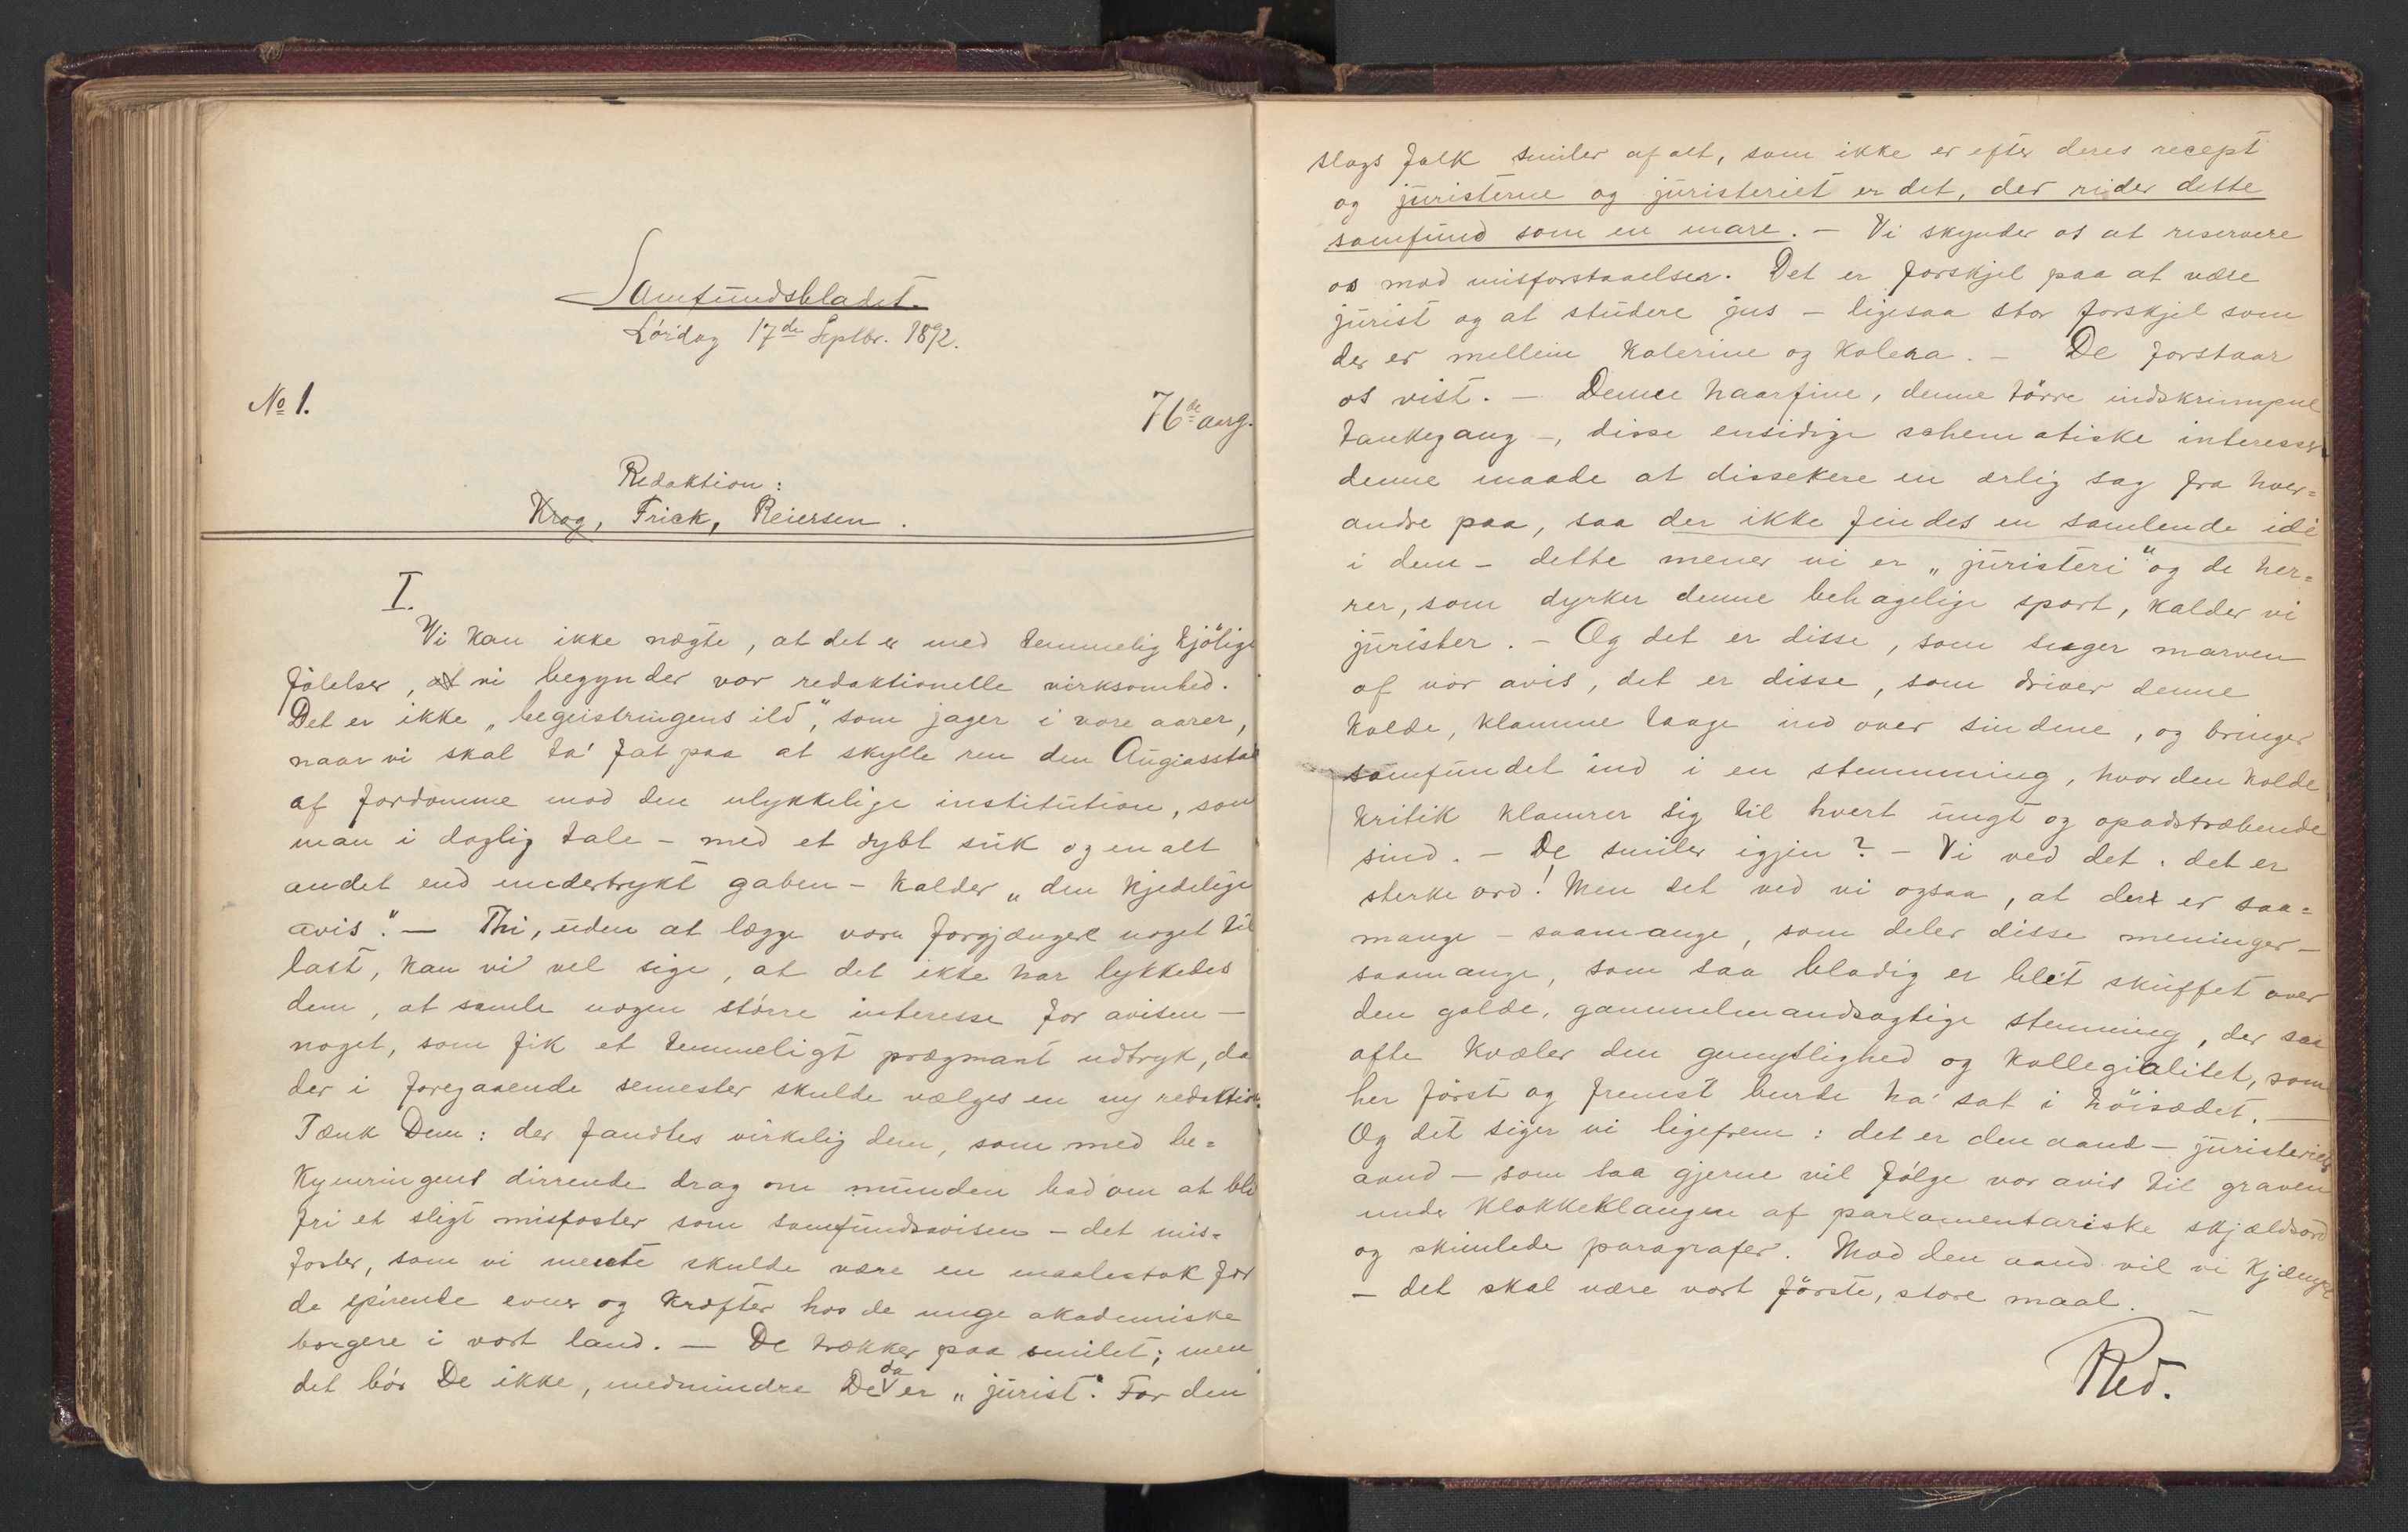 Samfundsbladet.
Lördag 17de Septbr. 1892.
No 1.
76de aarg.
Redaktion:
Krag, Frick, Reiersen.
I.
Vi kan ikke nægte, at det er med temmelig kjölige
fölelser, at vi begynder vor redaktionelle virksomhed.
Det er ikke „begeistringens ild“, som jager i vore aarer,
naar vi skal ta' fat paa at skylle ren den Augiasstal
af fordomme mod den ulykkelige institution, som
man i daglig tale – med et dybt suk og en alt
andet end undertrykt gaben – kalder „den kjedelige
avis“. – Thi, uden at lægge vore forgjængere noget til
last, kan vi vel sige, at det ikke har lykkedes
dem, at samle nogen större interesse for avisen –
noget, som fik et temmeligt prægnant udtryk, da
der i foregaaende semester skulde vælges en ny redaktion.
Tænk Dem: der fandtes virkelig dem, som med be=
kymringens dirrende drag om munden bad om at bli
fri et sligt misfoster som samfundsavisen – det mis=
foster, som vi mente skulde være en maalestok for
de spirende evner og kræfter hos de unge akademiske
borgere i vort land. – De trækker paa smilet; men
det bör De ikke, medmindre De da er „jurist“. For den
slags folk smiler af alt, som ikke er efter deres recept
og juristerne og juristeriet er det, der rider dette
samfund som en mare. – Vi skynder os at reservere
os mod misforstaaelser. Det er forskjel paa at være
jurist og at studere jus – ligesaa stor forskjel som
der er mellem Katerine og Kolera. – De forstaar
os vist. – Denne haarfine, denne törre indskrumpne
tankegang –, disse ensidige schematiske interesser
denne maade at dissekere en ærlig sag fra hver=
andre paa, saa der ikke findes en samlende idé
i dem – dette mener vi er „juristeri“ og de her=
rer, som dyrker denne behagelige sport, kalder vi
jurister. – Og det er disse, som suger marven
af vor avis, det er disse, som driver denne
kolde, klamme taage ind over sindene, og bringer
samfundet ind i en stemmning, hvor den kolde
kritik klamrer sig til hvert ungt og opadstræbende
sind. – De smiler igjen? – Vi ved det. det er
sterke ord! Men det ved vi ogsaa, at der er saa=
mange – saamange, som deler disse meninger –
saamange, som saa blodig er blét skuffet over
den golde, gammelmandsagtige stemning, der saa
ofte kvæler den gemytlighed og kollegialitet, som
her först og fremst burde ha' sat i höisædet. –
Og det siger vi ligefrem: det er den aand – juristeriets
aand – som saa gjerne vil fölge vor avis til graven
under klokkeklangen af parlamentariske skjældsord
og skimlede paragrafer. Mod den aand vil vi kjæmpe
– det skal være vort förste, store maal. –
Red.